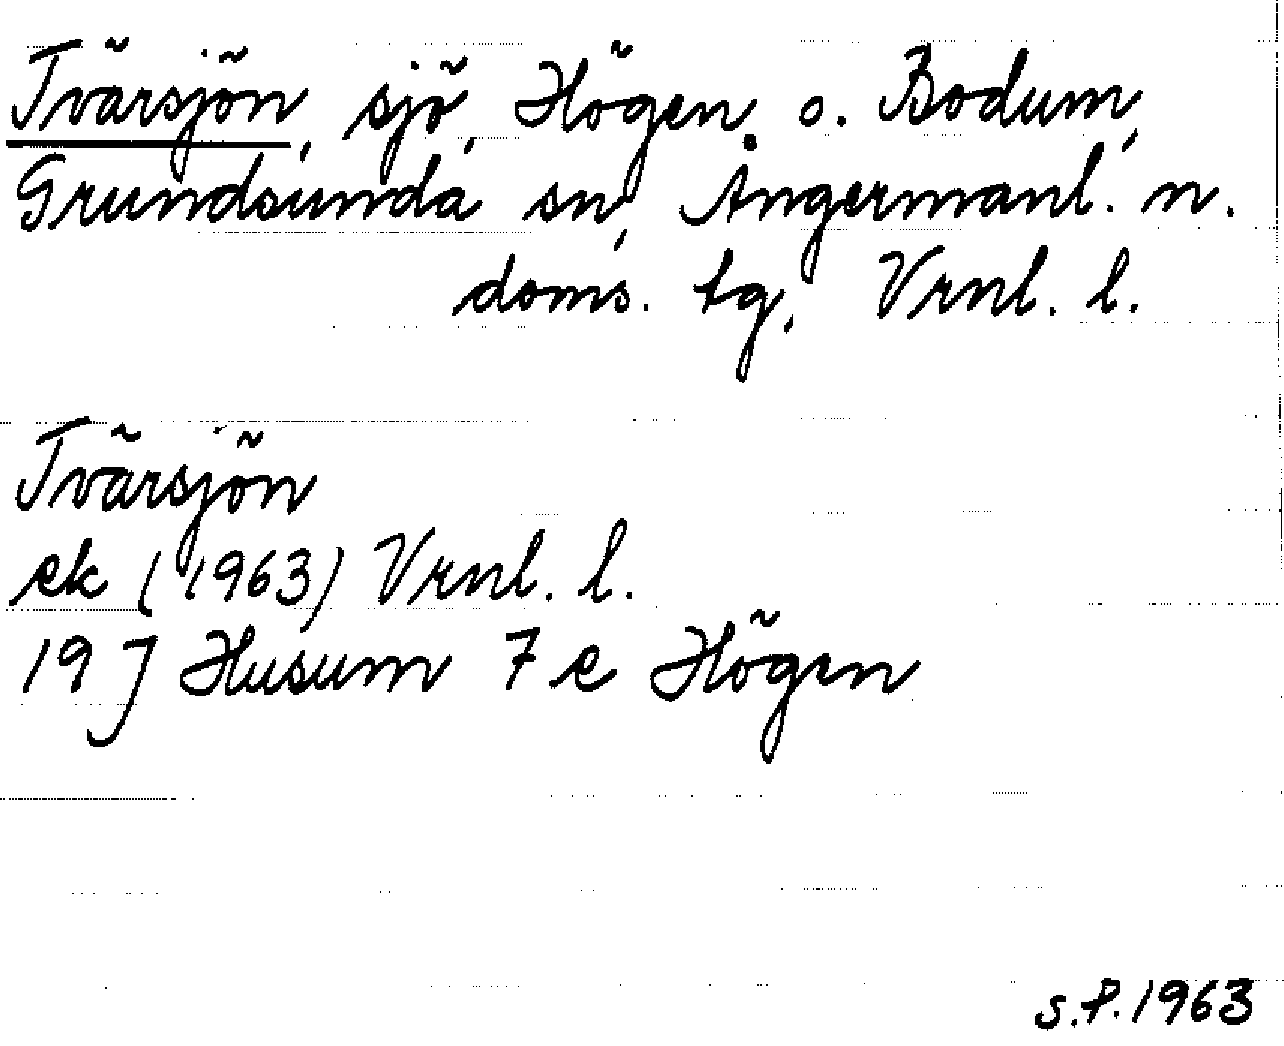 Tvärsjön, sjö, Högen o. Bodum,
Grundsunda sn, Ångermanl. n.
doms. tg, Vrnl. l.
Tvärsjön
ek (1963) Vrnl. l.
19 J Husum 7 e Högen
S.P. 1963